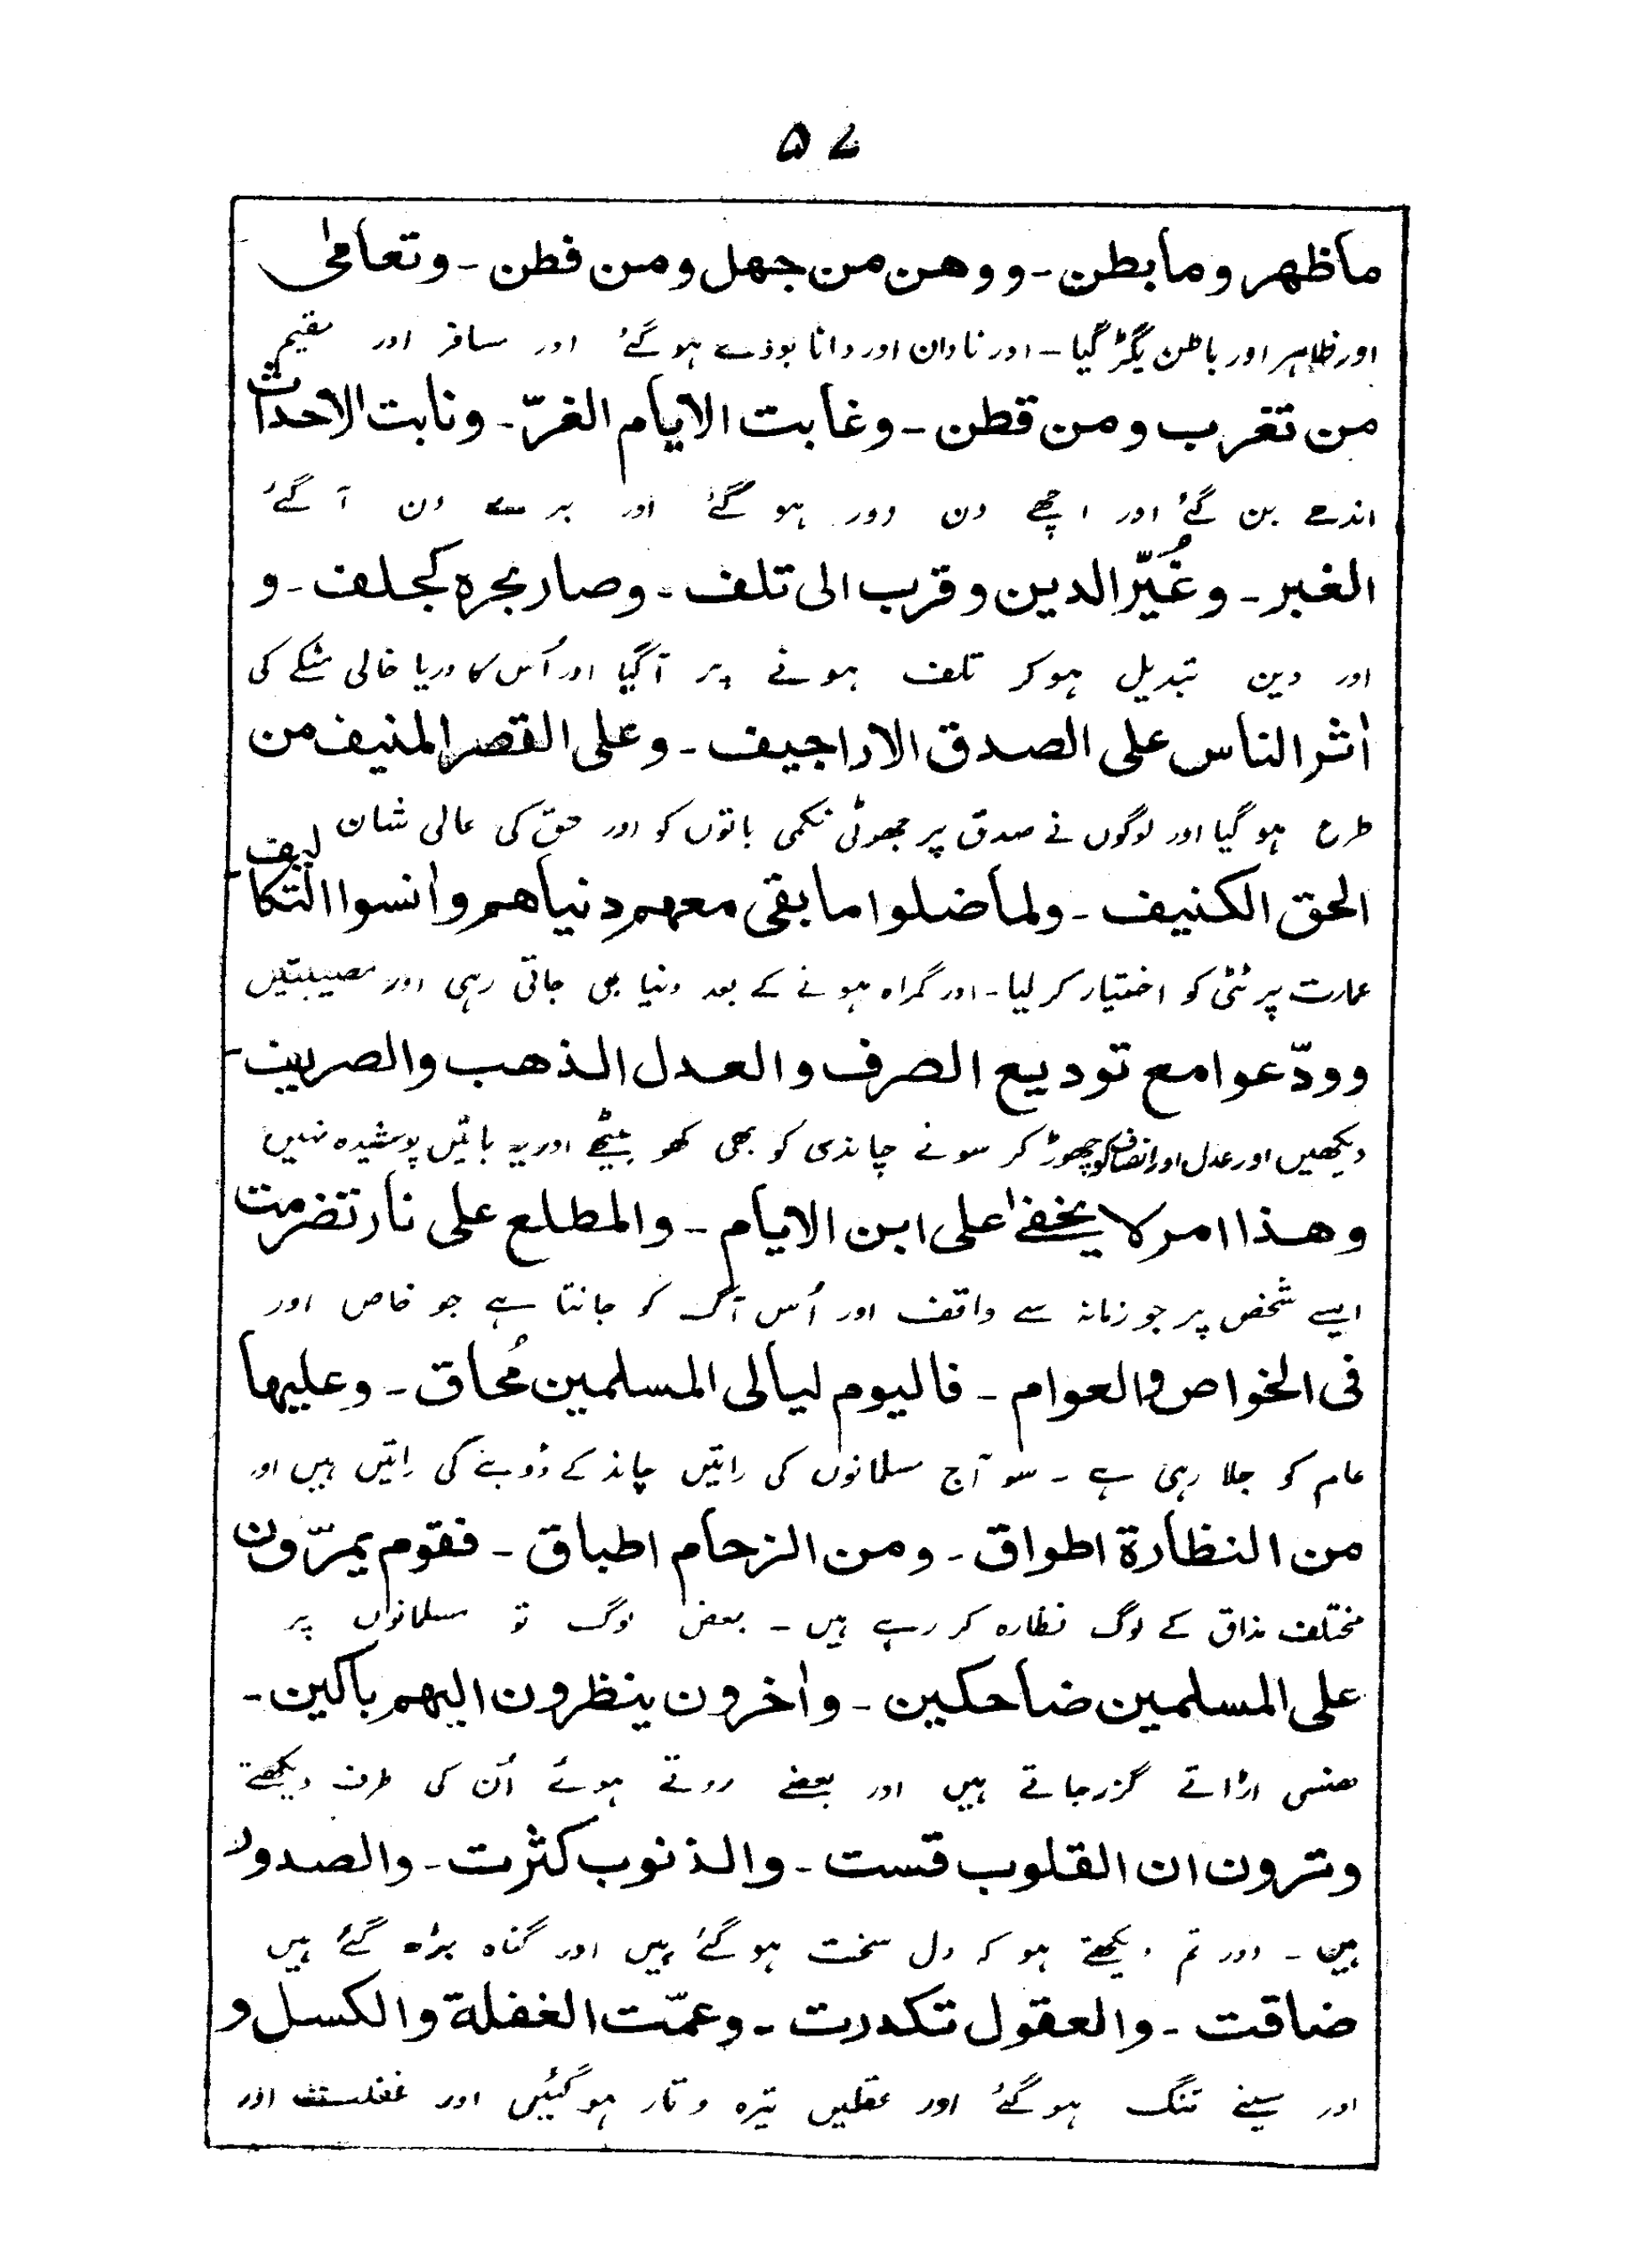 ۵۷
ماظهر وما بطن ـ ووهن من جهل ومن فطن ـ وتعامٰى
اور ظاہر اور باطن بگڑ گیا ـ اور نادان اور دانا بودے ہو گئے اور مسافر اور مقیم
من تغرب ومن قطن ـ وغابت الايام الغرّ ـ ونابت الاحداث
اندھے بن گئے اور اچھے دن دور ہو گئے اور برے دن آ گئے
الغبر ـ وغُيّر الدين وقرب الى تلف ـ وصار بحره كجلف ـ و
اور دین تبدیل ہوکر تلف ہونے پر آگیا اور اُس کا دریا خالی مٹکے کی
اٰثر الناس على الصدق الاراجيف ـ وعلى القصر المنيف من
طرح ہو گیا اور لوگوں نے صدق پر جھوٹی نکمی باتوں کو اور حق کی عالی شان
الحق الكنيف ـ ولما ضلوا ما بقى معهم دنياهم واٰنسوا التكاليف ـ
عمارت پر ٹٹی کو اختیار کر لیا ـ اور گمراہ ہونے کے بعد دنیا بھی جاتی رہی اور مصیبتیں
وودّعوا مع توديع الصرف والعدل الذهب والصريف ـ
دیکھیں اور عدل اور انصاف کو چھوڑ کر سونے چاندی کو بھی کھو بیٹھے اور یہ باتیں پوشیدہ نہیں
وهذا امر لا يخفےٰ على ابن الايام ـ والمطلع على نار تضرمت
ایسے شخص پر جو زمانہ سے واقف اور اُس آگ کو جانتا ہے جو خاص اور
فى الخواص والعوام ـ فاليوم ليالى المسلمين مُحاق ـ وعليها
عام کو جلا رہی ہے ـ سو آج مسلمانوں کی راتیں چاند کے ڈوبنے کی راتیں ہیں اور
من النظارة اطواق ـ ومن الزحام اطباق ـ فقوم يمرّون
مختلف مذاق کے لوگ نظارہ کر رہے ہیں ـ بعض لوگ تو مسلمانوں پر
على المسلمين ضاحكين ـ واٰخرون ينظرون اليهم باكين ـ
ھنسی اڑاتے گزر جاتے ہیں اور بعضے روتے ہوئے اُن کی طرف دیکھتے
وترون ان القلوب قست ـ والذنوب كثرت ـ والصدور
ہیں ـ اور تم دیکھتے ہو کہ دل سخت ہو گئے ہیں اور گناہ بڑھ گئے ہیں
ضاقت ـ والعقول تكدرت ـ وعمّت الغفلة والكسل و
اور سینے تنگ ہو گئے اور عقلیں تیرہ و تار ہو گئیں اور غفلت اور